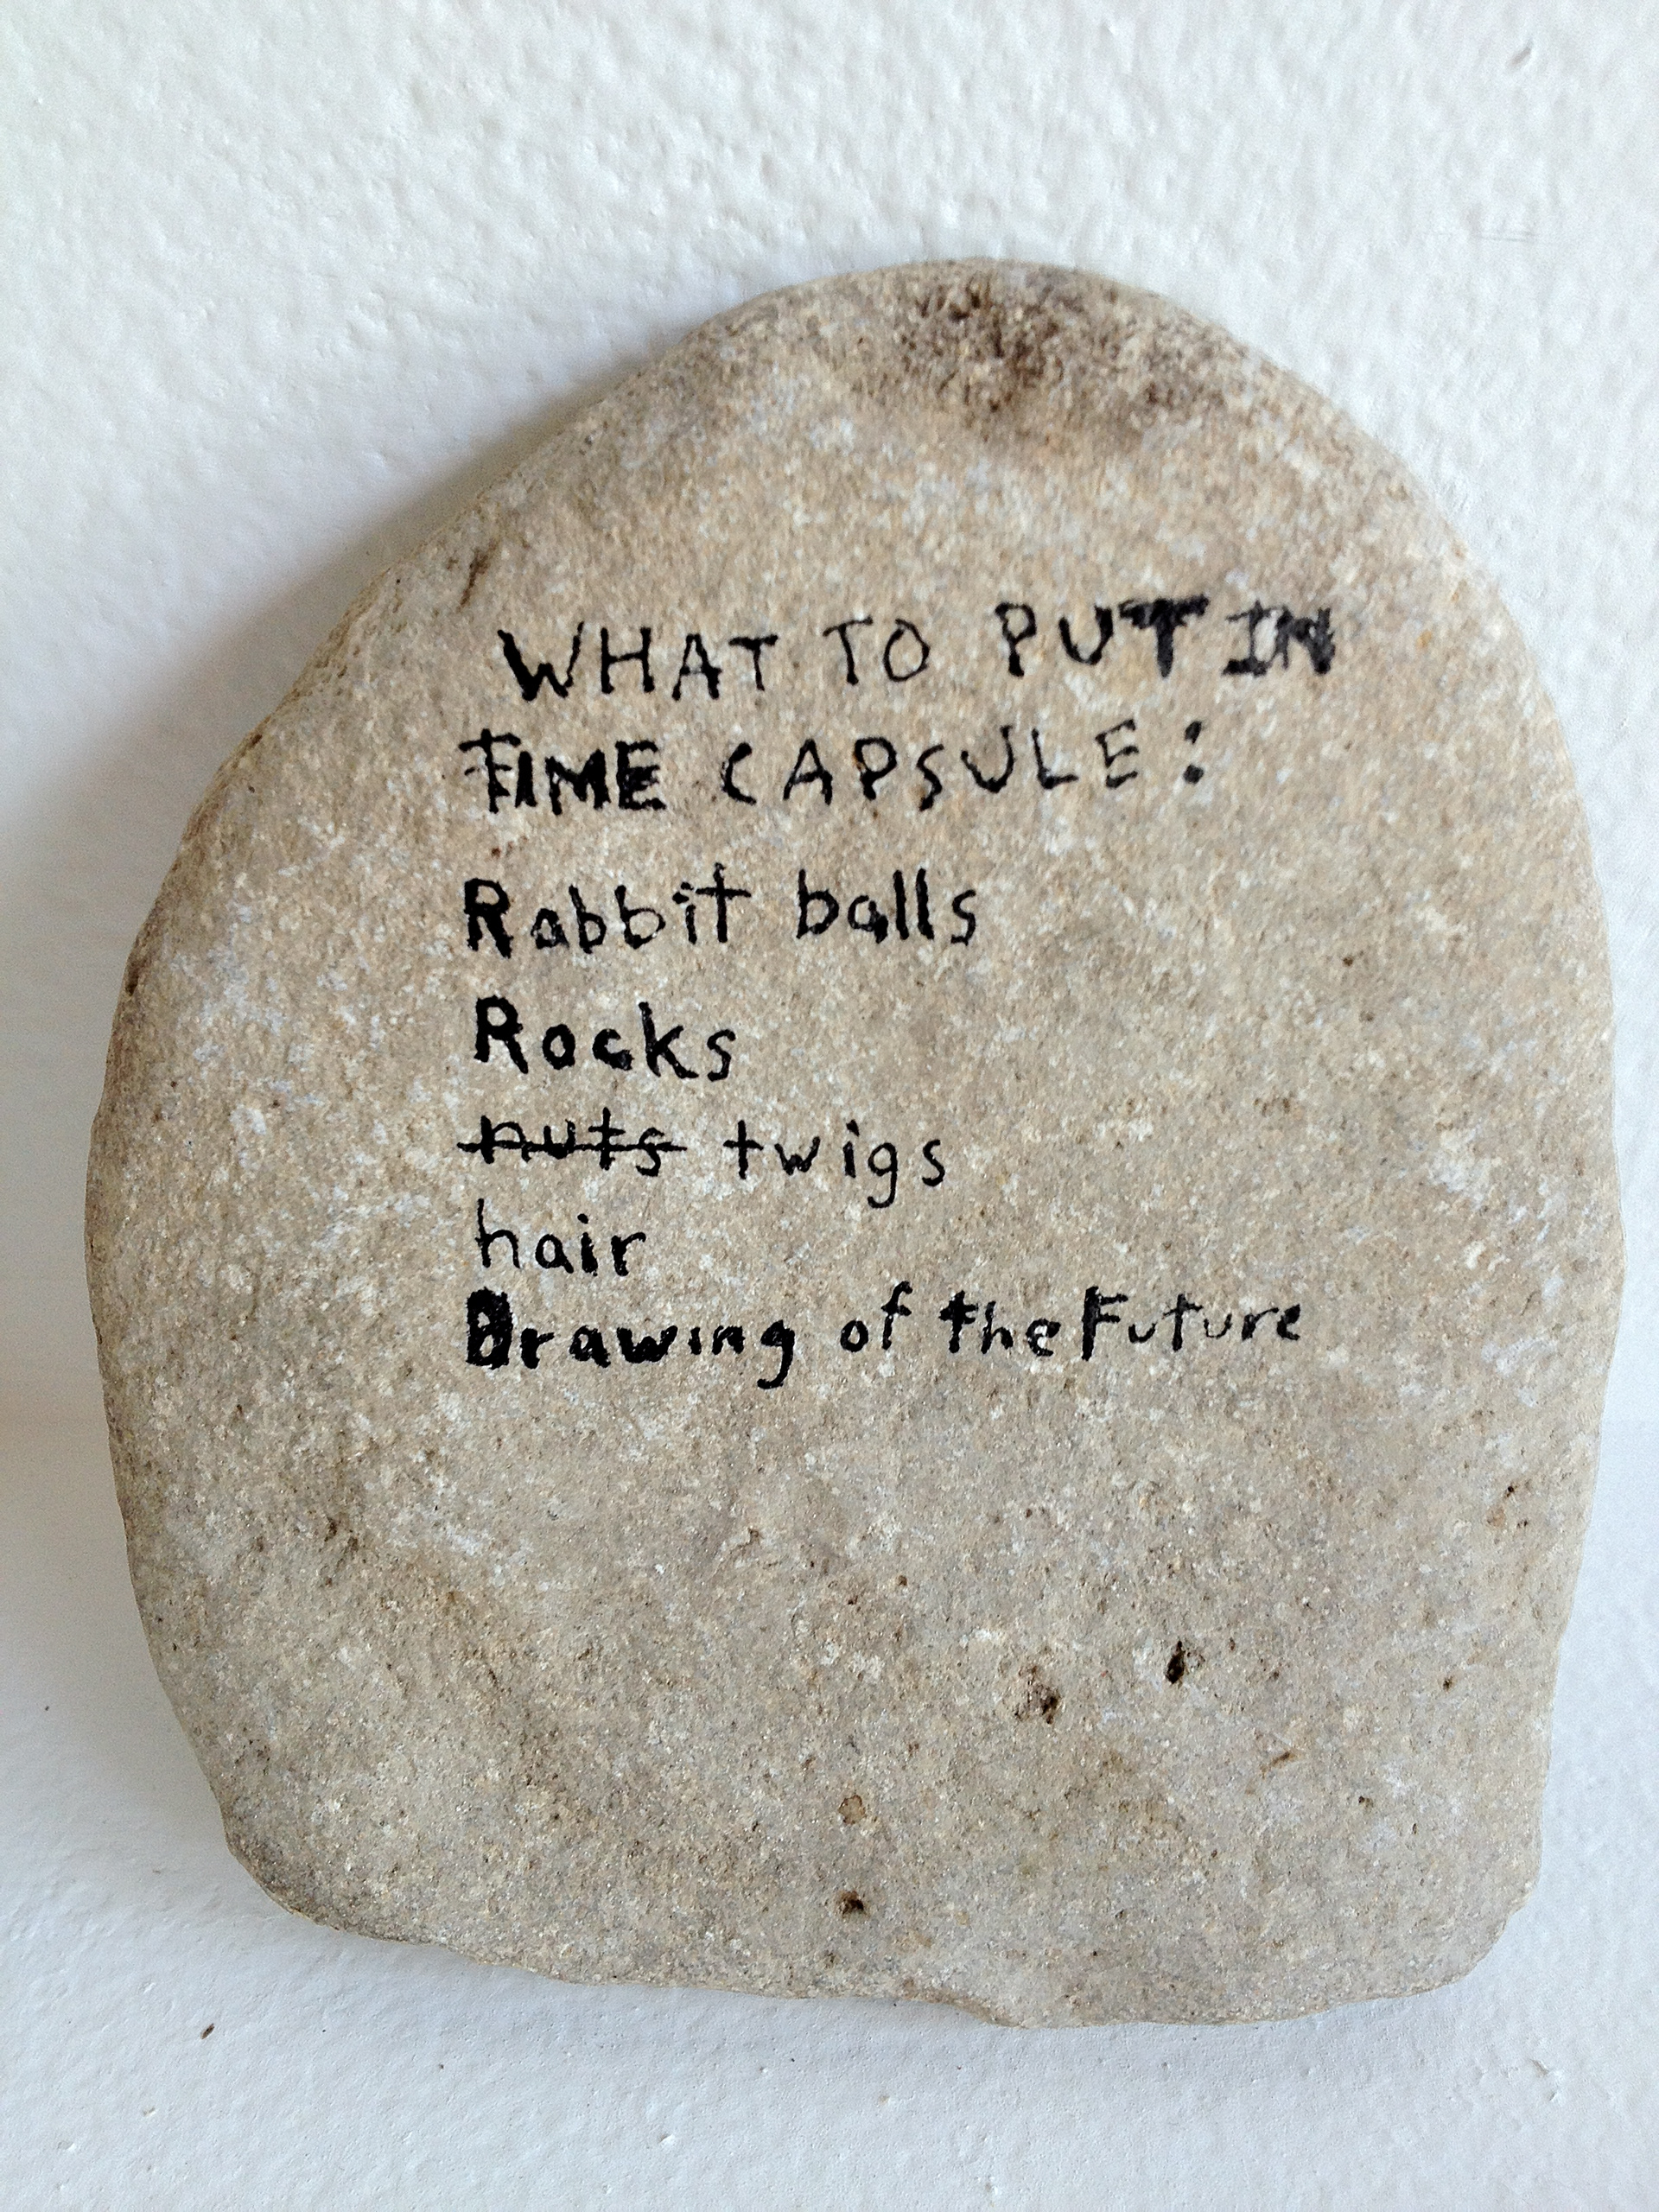 WHAT TO PUT IN
TIME CAPSULE:
Rabbit balls
Rocks
nuts twigs
hair
Drawing of the Future